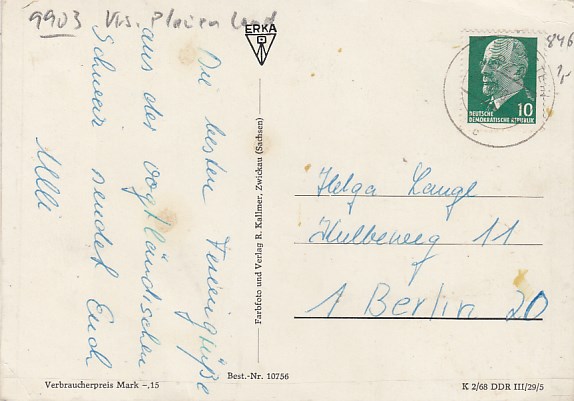 9903 Krs. Plauen Land
Die besten Feriengrüße
aus der vogtländischen
Schweiz sendet Euch
Ulli
ERKA
Farbfoto und Verlag R. Kallmer, Zwickau (Sachsen)
846
1,-
DEUTSCHE
DEMOKRATISCHE REPUBLIK
10
Helga Lange
Hulbeweg 11
1 Berlin 20
Verbraucherpreis Mark –,15
Best.-Nr. 10756
K 2/68 DDR III/29/5